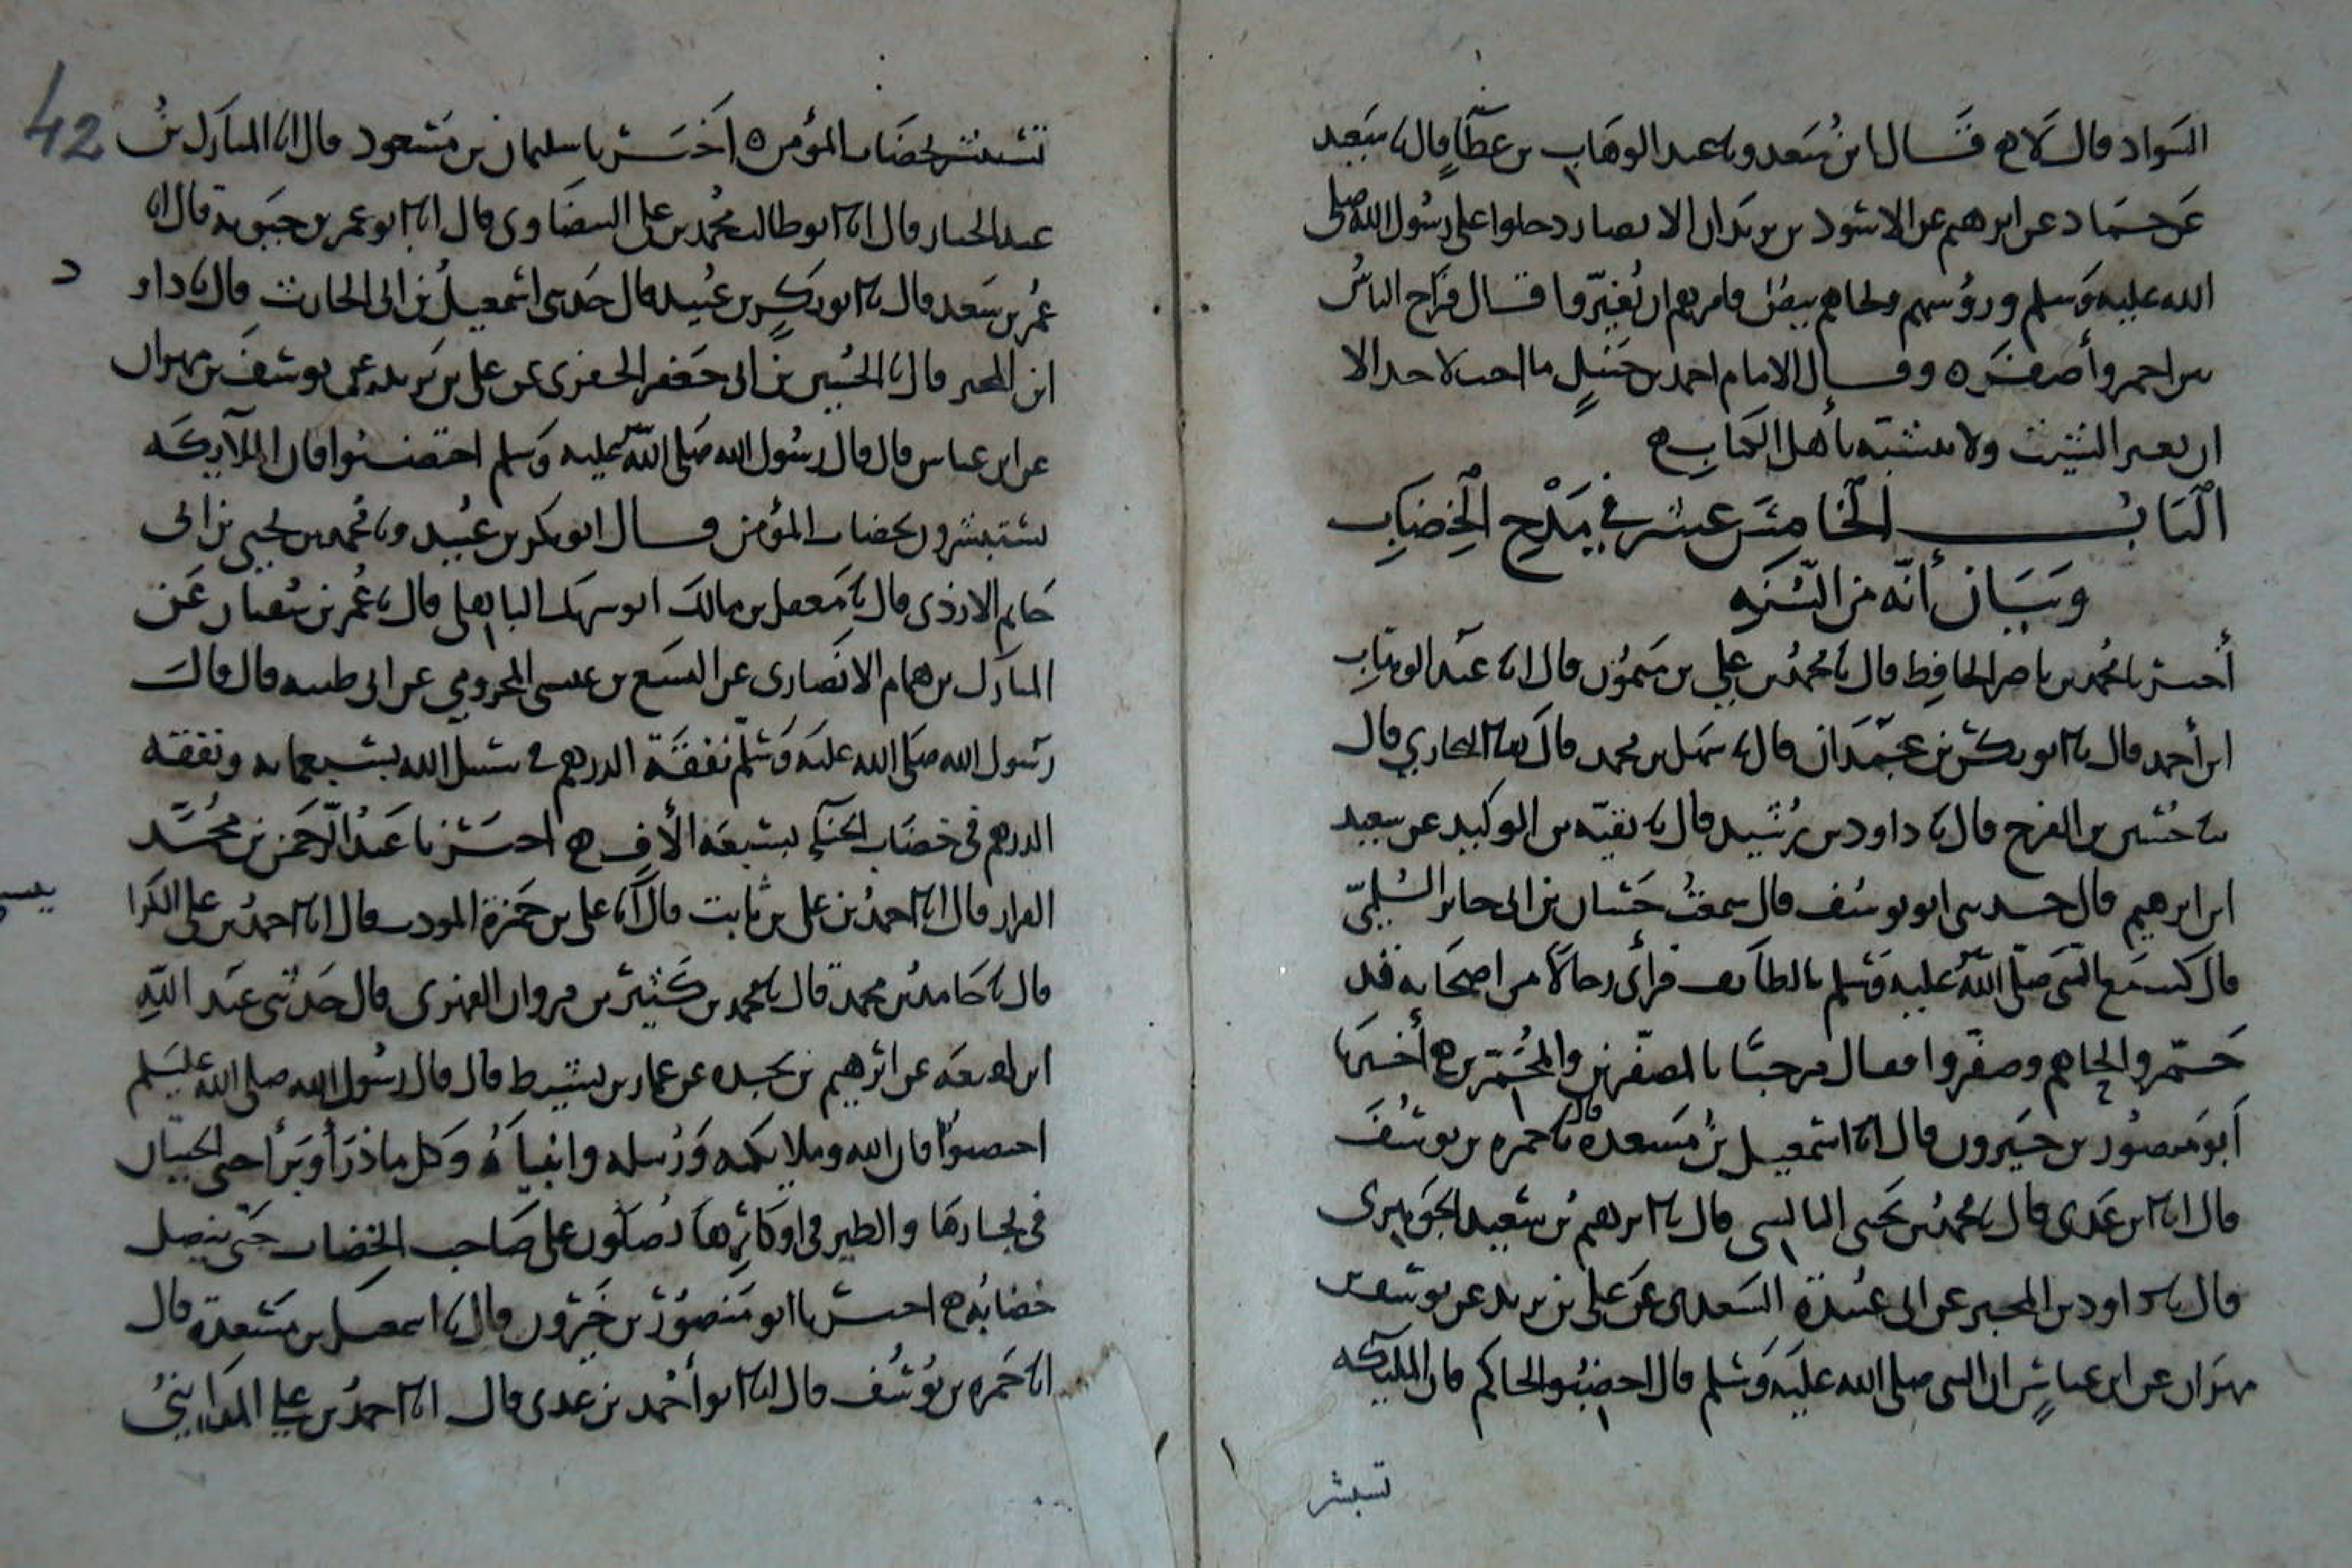 السواد قال لا ه قال ابن سعد وبا عبد الوهاب بن عطاء قال با سعيد
عن حماد عن ابرهيم عن الاسود بن يزيد ان الانصار دخلوا على رسول الله صلى
الله عليه وسلم ورؤسهم ولحاهم بيض فامرهم ان يغيروا قال فراح الناس
بين احمر وأصفر ه وقال الامام احمد بن حنبل ما احب لاحد الا
ان يغير الشيب ولا يتشبه بأهل الكتاب ه
الباب الخامس عشر في مدح الخضاب
وبيان أنه من السنه
أخبرنا محمد بن ناصر الحافظ قال با محمد بن علي بن ميمون قال انا عبد الوهاب
ابن أحمد قال با ابو بكر بن عبدان قال با سهل بن محمد قال ثنا البخاري قال
ثنا حسين بن الفرج قال با داود بن رشيد قال با بقية بن الوليد عن سعيد
ابن ابرهيم قال حدثني ابو يوسف قال سمعت حسان بن ابي جابر السلمي
قال كنت مع النبي صلى الله عليه وسلم بالطائف فرأى رجالا من اصحابه قد
حمروا لحاهم وصفروا فقال مرحبا بالمصفرين والمحمرين ه أخبرنا
أبو منصور بن خيرون قال انا اسمعيل بن مسعده قال با حمزه بن يوسف
قال انا ابن عدي قال با محمد بن يحيى البالسي قال با ابرهيم بن سعيد الجوهري
قال با داود بن المحبر عن ابي عبيدة السعدي عن علي بن يزيد عن يوسف بن
مهران عن ابن عباس ان النبي صلى الله عليه وسلم قال اخضبوا لحاكم فان المليكه
تستبشر
42
تستبشر بخضاب المؤمن ه أخبرنا سليمان بن مسعود قال انا المبارك بن
عبد الجبار قال انا ابو طالب محمد بن علي البيضاوي قال انا ابو عمر بن حيويه قال انا
عمر بن سعد قال با ابو بكر بن عبيد قال حدثني اسمعيل بن ابي الحارث قال با داو
د
ابن المحبر قال با الحسين بن ابي جعفر الجعفري عن علي بن يزيد عن يوسف بن مهران
عن ابن عباس قال قال رسول الله صلى الله عليه وسلم اختضبوا فان الملآيكه
يستبشرون بخضاب المؤمن قال ابو بكر بن عبيد وبا محمد بن يحيى بن ابي
حاتم الازدي قال با معقل بن مالك ابو سهل الباهلي قال با عمر بن سفيان عن
المبارك بن همام الانصاري عن اليسع بن عيسى المخزومي عن ابي طيبه قال قال
رسول الله صلى الله عليه وسلم نفقة الدرهم في سبيل الله بسبعمايه ونفقة
الدرهم في خضاب الحنآ بسبعة الأف ه اخبرنا عبد الرحمن بن محمد
القزاز قال انا احمد بن علي بن ثابت قال انا علي بن حمزة المودب قال انا احمد بن علي الكرا
بيسي
قال با حامد بن محمد قال با محمد بن كثير بن مروان الفهري قال حدثني عبد الله
ابن لهيعه عن ابرهيم عن عمار بن نشيط قال قال رسول الله صلى الله عليه وسلم
اختضبوا فان الله وملايكته ورسله وانبياءه وكل ما ذرأ وبرأ حتى الحيتان
في بحارها والطير في اوكارها يصلون على صاحب الخضاب حتى ينصل
خضابه ه اخبرنا ابو منصور بن خيرون قال با اسمعيل بن مسعدة قال
انا حمزه بن يوسف قال انا ابو أحمد بن عدي قال انا احمد بن علي المدايني